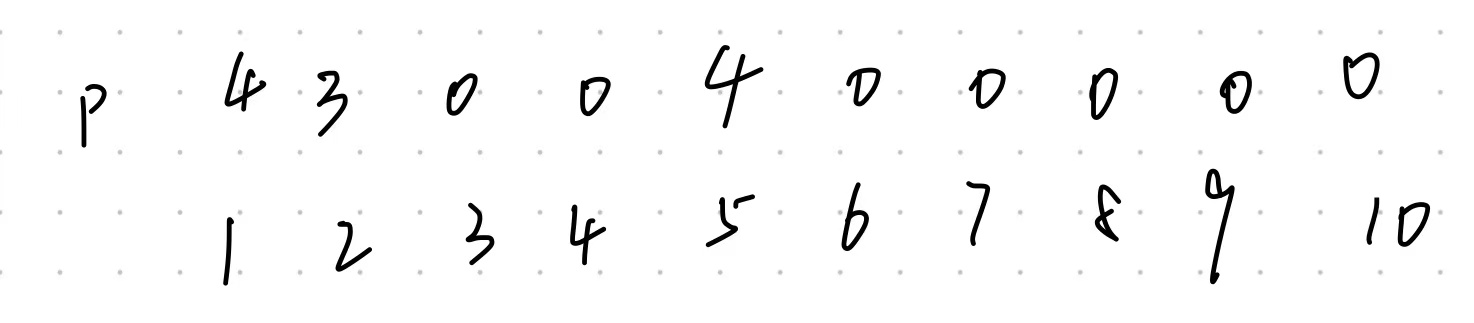 p 4 3 0 0 4 0 0 0 0 0
1 2 3 4 5 6 7 8 9 10